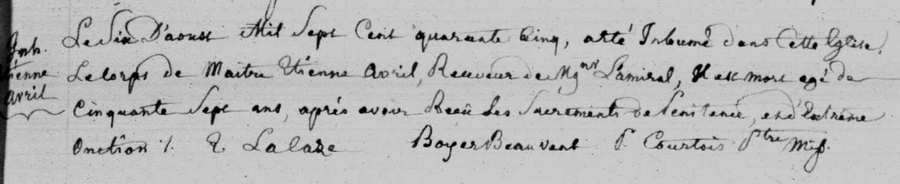 Inh.
Etienne
Avril
Le Six D'aoust Mil Sept Cent quarante Cinq, a été Inhumé dans Cette Eglise,
Le Corps de Maitre Etienne Avril, Receveur de Mgnr Lamiral, Il est mort agé de
Cinquante Sept ans, aprés avoir Recû Les Sacrements de Penitence, et d'Extrême
Onction /. E. Lalaze Boyer Beauvent P. Courtois Ptre Miss.